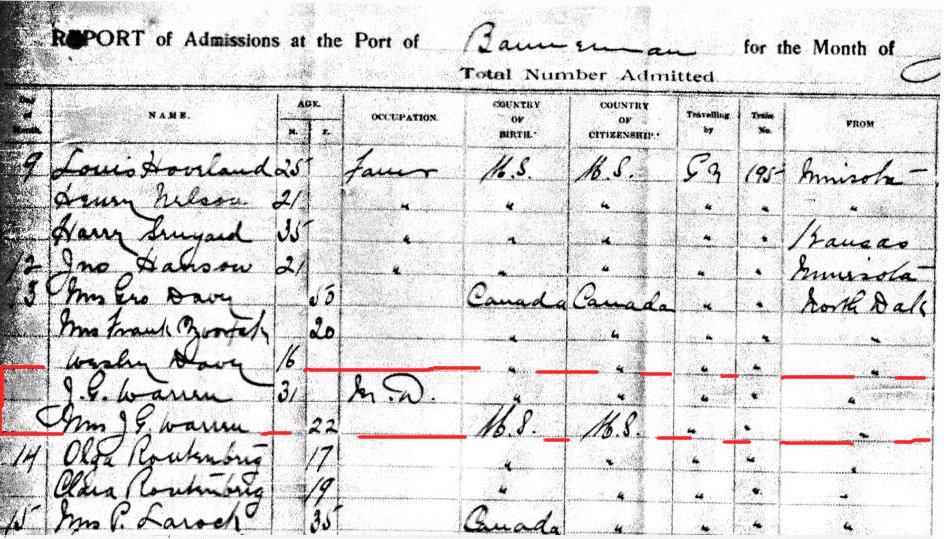 REPORT of Admissions at the Port of Bannerman for the Month of
Total Number Admitted
Day of Month. NAME. AGE. M. F. OCCUPATION. COUNTRY OF BIRTH. COUNTRY OF CITIZENSHIP. Travelling by Train No. FROM
9 Louis Hoverland 25 Farmer U.S. U.S. G N 195 Minisota
Henry Nelson 21 " " " " " "
Harry 35 " " " " " Kansas
12 Jno Hanson 21 " " " " " Minisota
13 Mrs Geo Davy 50 Canada Canada " " North Dak
Mrs Frank 20 " " " " "
Wesley Davy 16 " " " " "
J.G. Warren 31 M.D. " " " " "
Mrs J G Warren 22 U.S. U.S. " " "
14 Olga Routenbrig 17 " " " " "
Clara Routenbrig 19 " " " " "
15 Mrs P. Laroch 35 Canada " " " "